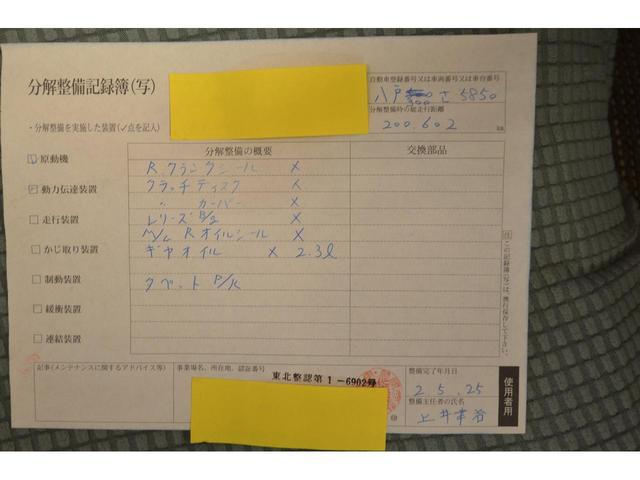 分解整備記録簿(写)
自動車登録番号又は車両番号又は車台番号
八戸 300 さ 5850
分解整備時の総走行距離
200,602 km
・分解整備を実施した装置(✓点を記入)
分解整備の概要 交換部品
✓ 原動機
✓ 動力伝達装置
走行装置
かじ取り装置
制動装置
緩衝装置
連結装置
R.クランクシール ×
クラッチディスク ×
〃 カーバー ×
レリーズB/g ×
M/C Rオイルシール ×
ギヤオイル × 2.3ℓ
タペット P/K
(注)この記録簿(写)は、携行保存して下さい。
記事(メンテナンスに関するアドバイス等)
事業場名、所在地、認証番号
東北整認第1-6902号
整備完了年月日
2.5.25
整備主任者の氏名
使用者用